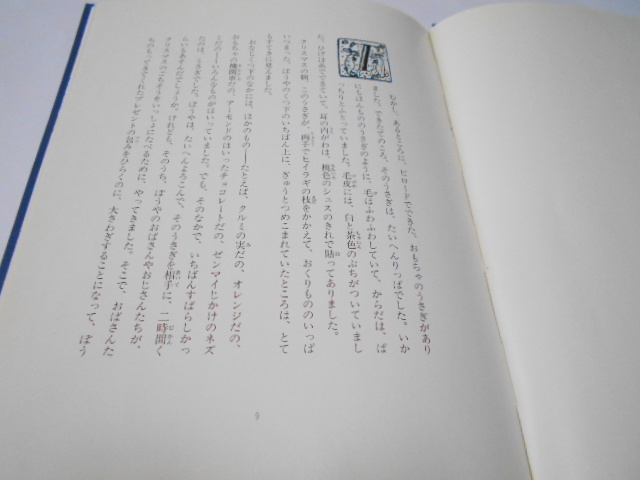 むかし、あるところに、ビロードでできた、おもちゃのうさぎがあり
ました。できたてのころ、そのうさぎは、たいへんりっぱでした。いか
にもほんもののうさぎのように、毛はふわふわしていて、からだは、ぱ
っちりとふとっていました。毛皮には、白と茶色のぶちがついていまし
た。ひげは糸でできていて、耳の内がわは、桃色のシュスのきれで貼ってありました。
クリスマスの朝、このうさぎが、両手でヒイラギの枝をかかえて、おくりもののいっぱ
いつまった、ぼうやのくつ下のいちばん上に、ぎゅうとつめこまれていたところは、とて
もすてきに見えました。
おなじくつ下のなかには、ほかのもの——たとえば、クルミの実だの、オレンジだの、
おもちゃの機関車だの、アーモンドのはいったチョコレートだの、ゼンマイじかけのネズ
ミだの——いろんなものがはいっていました。でも、そのなかで、いちばんすばらしかっ
たのは、うさぎでした。ぼうやは、たいへんよろこんで、そのうさぎを相手に、二時間く
らいもあそんだでしょうか。けれども、そのうち、ぼうやのおばさんやおじさんたちが、
クリスマスのごちそうをいっしょにたべるために、やってきました。そこで、おばさんた
ちのもってきてくれたプレゼントの包みをひらくのに、大さわぎすることになって、ぼう
9